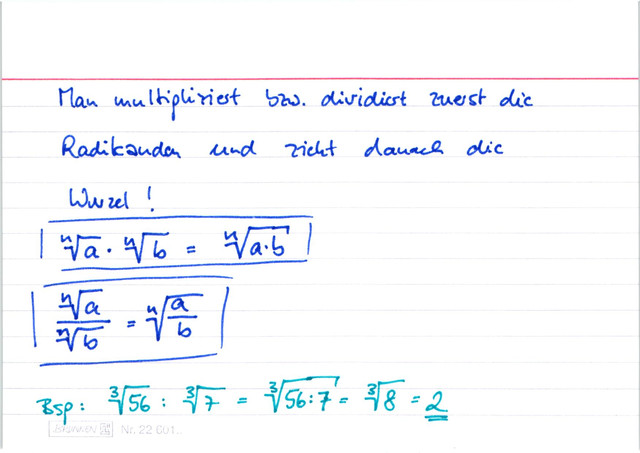 Man multipliziert bzw. dividiert zuerst die
Radikanden und zieht danach die
Wurzel !
ⁿ√a · ⁿ√b = ⁿ√(a·b)
ⁿ√a / ⁿ√b = ⁿ√(a/b)
Bsp: ³√56 : ³√7 = ³√(56:7) = ³√8 = 2
Nr. 22 601..